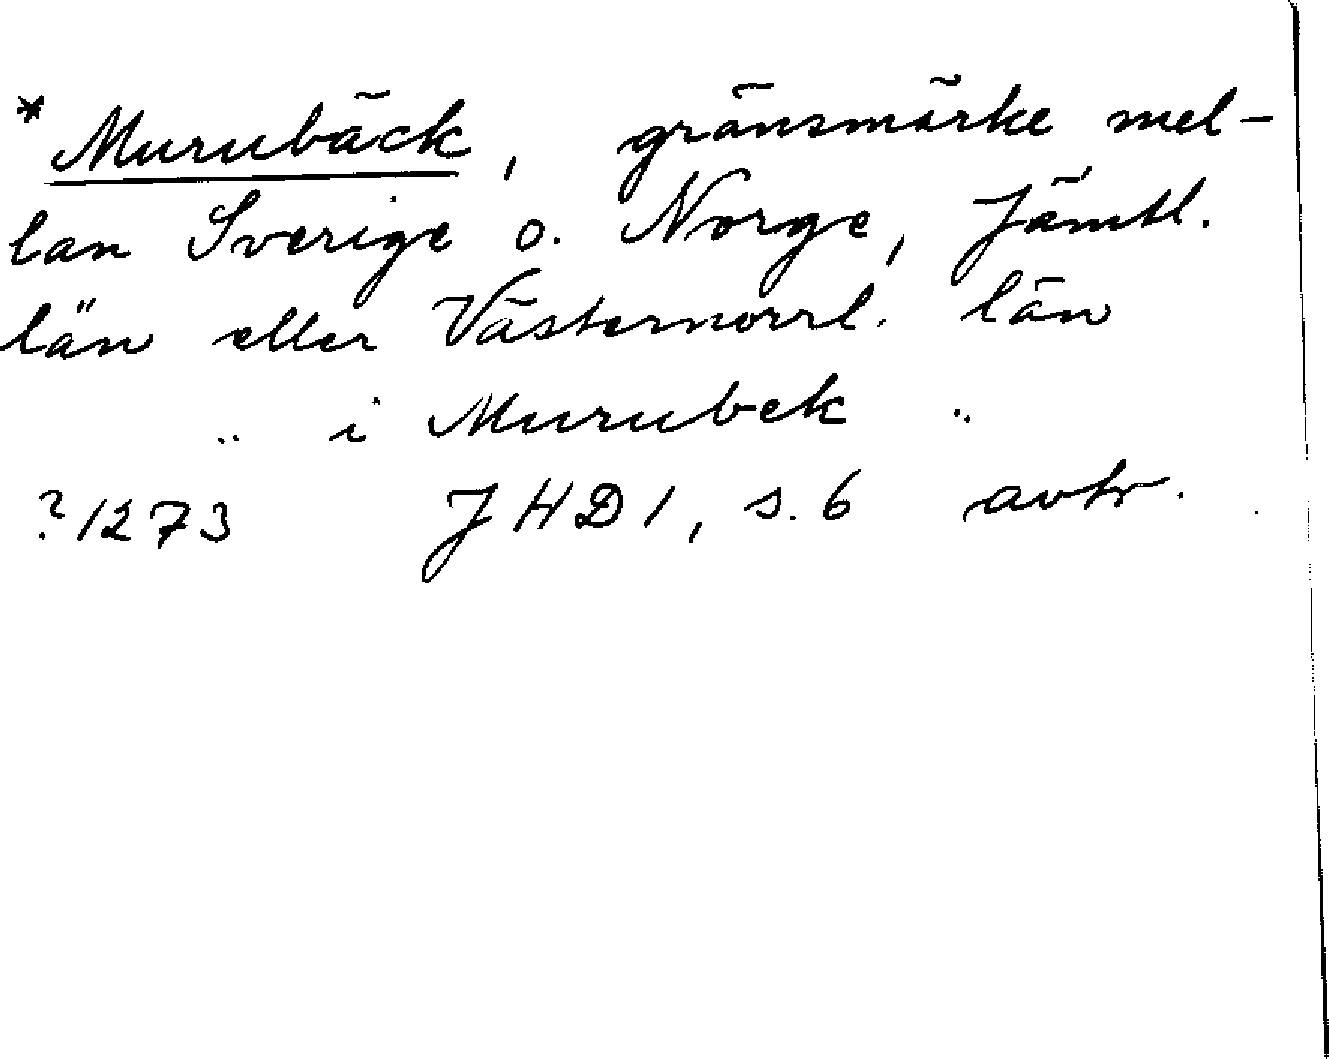 * Murubäck, gränsmärke mel-
lan Sverige o. Norge, Jämtl.
län eller Västernorrl. län
.. i Murubek ..
? 1273 JHD 1, s. 6 avtr.